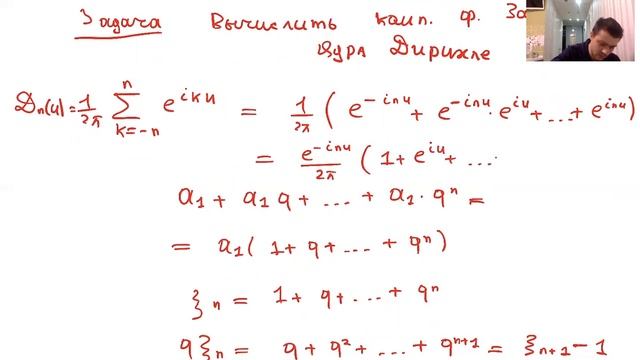 Задача Вычислить комп. ф.
Ядра Дирихле
Dₙ(u) = 1/2π ∑ₖ₌₋ₙⁿ e^{iku} = 1/2π (e^{-inu} + e^{-inu}·e^{iu} + ... + e^{inu})
= e^{-inu}/2π (1 + e^{iu} + ...
a₁ + a₁q + ... + a₁·qⁿ =
= a₁(1 + q + ... + qⁿ)
ξₙ = 1 + q + ... + qⁿ
qξₙ = q + q² + ... + qⁿ⁺¹ = ξₙ₊₁ - 1